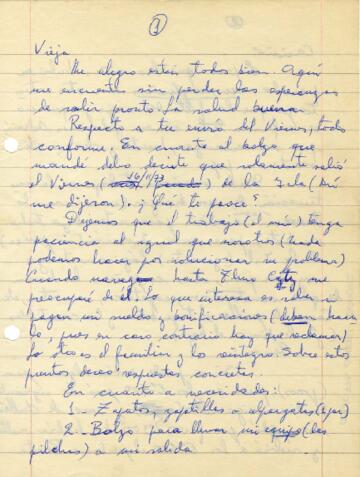 1
Vieja
Me alegro estén todos bien. Aquí
me encuentro sin perder las esperanzas
de salir pronto. La salud buena.
Respecto a tu envío del Viernes, todo
conforme. En cuanto al bolso que
mandé debo decirte que solamente salió
el Viernes 16/11/73 de la Isla (así
me dijeron). ¿Qué te parece?
Dijemos que el trabajo (el mío) tenga
paciencia al igual que nosotros (nada
podemos hacer por solucionar mi problema)
Cuando hasta
preocuparé de él. Lo que interesa es saber si
pagan mi sueldo y bonificaciones (deben hacer
lo, pues en caso contrario hay que reclamar)
Lo otro es el y los reintegros. Sobre estos
puntos deseo respuestas concretas.
En cuanto a necesidades:
1.- Zapatos, zapatillas o alpargatas
2.- Bolso para llevar mi equipo (las
pilchas) a mi salida